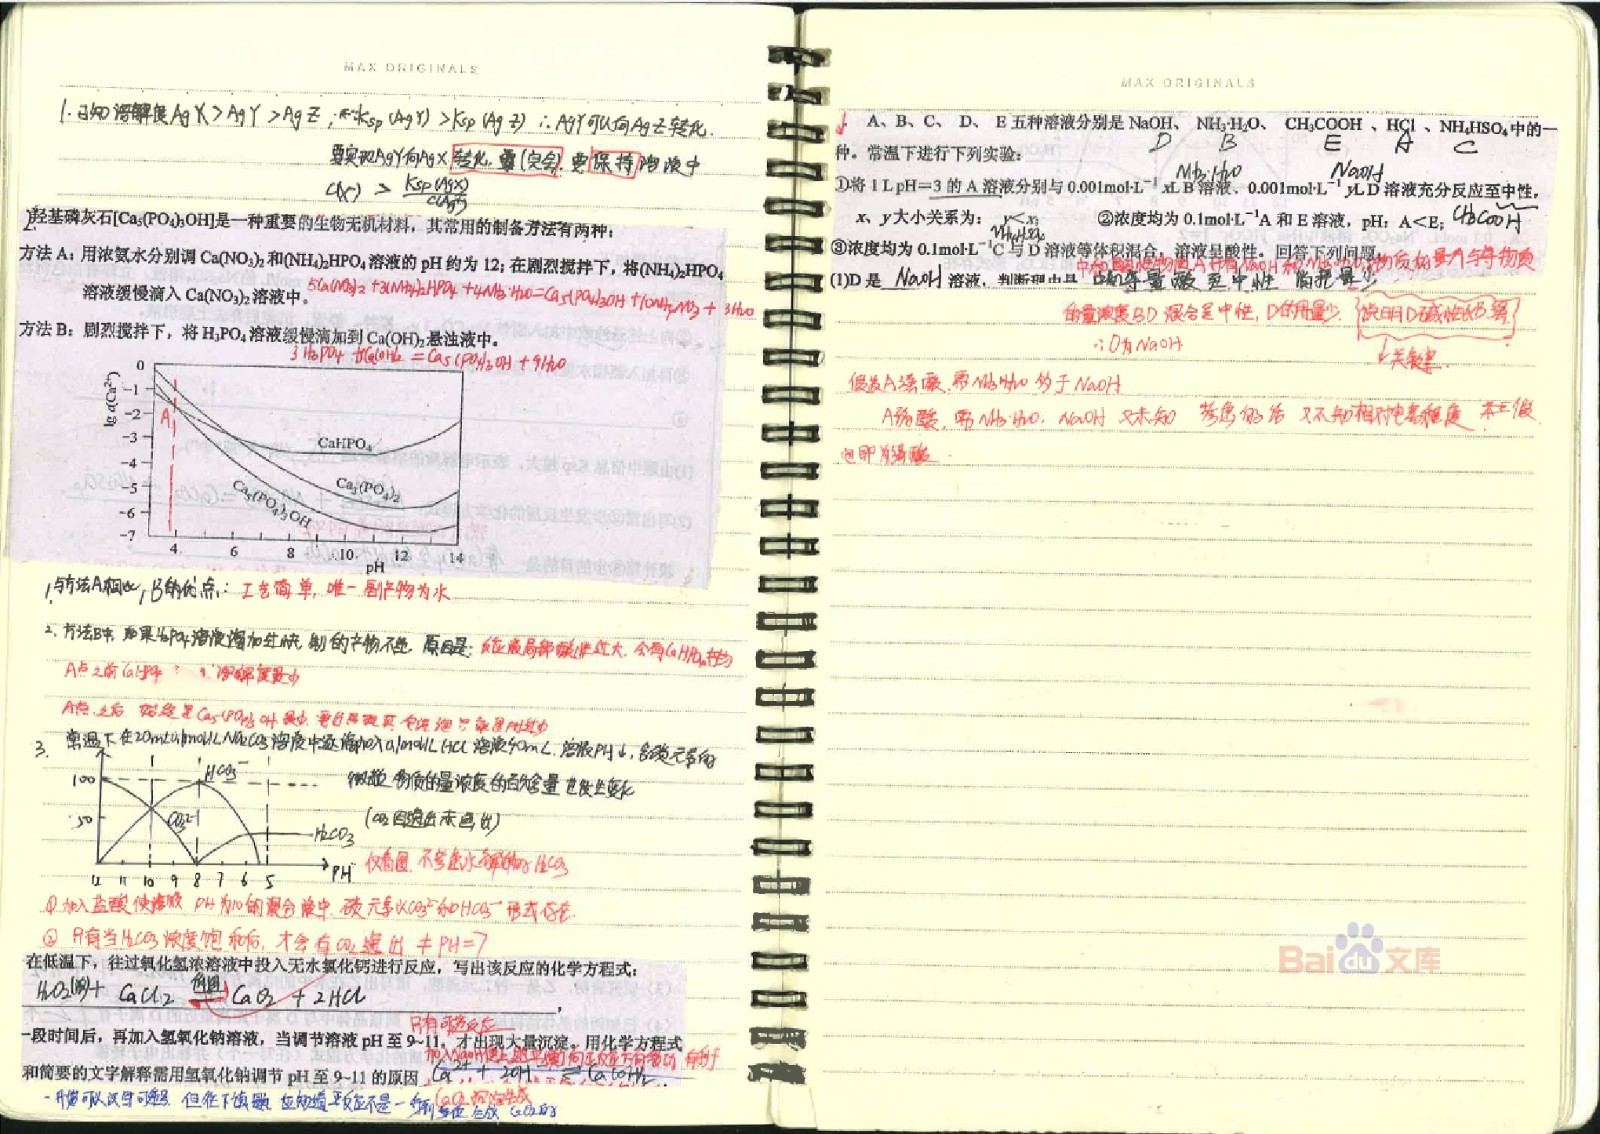 MAX ORIGINALS
1. 已知溶解度AgX>AgY>AgZ; Ksp(AgY)>Ksp(AgZ) ∴AgY可以向AgZ转化.
要实现AgY向AgX转化, 需(完全), 要保持溶液中
c(X⁻) > Ksp(AgX)/c(Ag⁺)
羟基磷灰石[Ca₅(PO₄)₃OH]是一种重要的生物无机材料，其常用的制备方法有两种：
方法 A：用浓氨水分别调 Ca(NO₃)₂ 和(NH₄)₂HPO₄ 溶液的 pH 约为 12；在剧烈搅拌下，将(NH₄)₂HPO₄
溶液缓慢滴入 Ca(NO₃)₂ 溶液中。
5Ca(NO₃)₂+3(NH₄)₂HPO₄+4NH₃·H₂O=Ca₅(PO₄)₃OH+10NH₄NO₃+3H₂O
方法 B：剧烈搅拌下，将 H₃PO₄ 溶液缓慢滴加到 Ca(OH)₂ 悬浊液中。
3H₃PO₄+5Ca(OH)₂=Ca₅(PO₄)₃OH+9H₂O
lg c(Ca²⁺)
0
-1
-2
-3
-4
-5
-6
-7
A
CaHPO₄
Ca₃(PO₄)₂
Ca₅(PO₄)₃OH
4 6 8 10 12 14
pH
1. 与方法A相比, B的优点: 工艺简单, 唯一副产物为水
2. 方法B中, 如果H₃PO₄溶液滴加过快, 制的产物不纯, 原因是: 反应液局部酸性过大, 会有CaHPO₄产物
A点之前CaHPO₄溶解度最小
A点之后, Ca₅(PO₄)₃OH最小
3. 常温下在20mL0.1mol/L Na₂CO₃溶液中逐滴加入0.1mol/L HCl溶液40mL, 溶液PH↓, 含碳元素的
微粒物质的量浓度的百分含量也发生变化
(CO₂因逸出未画出)
100
50
HCO₃⁻
CO₃²⁻
H₂CO₃
12 11 10 9 8 7 6 5 PH
仅看图, 不考虑水解的H₂CO₃
①加入盐酸使溶液PH为10的混合液中, 碳元素以CO₃²⁻和HCO₃⁻形式存在.
②只有当H₂CO₃浓度饱和后, 才会有CO₂逸出 ≠PH=7
在低温下，往过氧化氢浓溶液中投入无水氯化钙进行反应，写出该反应的化学方程式：
H₂O₂(浓)+CaCl₂ ⇌ CaO₂+2HCl
只有可逆反应
一段时间后，再加入氢氧化钠溶液，当调节溶液 pH 至 9~11，才出现大量沉淀。用化学方程式
加入NaOH使上述平衡向正反应方向移动 有利于
和简要的文字解释需用氢氧化钠调节 pH 至 9~11 的原因 Ca²⁺+2OH⁻⇌Ca(OH)₂
CaO₂沉淀生成
MAX ORIGINALS
A、B、C、 D、 E 五种溶液分别是 NaOH、 NH₃·H₂O、 CH₃COOH 、HCl 、NH₄HSO₄ 中的一
D B E A C
种。常温下进行下列实验：
NH₃·H₂O NaOH
①将 1 L pH＝3 的 A 溶液分别与 0.001mol·L⁻¹ xL B 溶液、0.001mol·L⁻¹ yL D 溶液充分反应至中性，
x、y 大小关系为： y＜x； ②浓度均为 0.1mol·L⁻¹A 和 E 溶液，pH：A＜E； CH₃COOH
③浓度均为 0.1mol·L⁻¹C 与 D 溶液等体积混合，溶液呈酸性。回答下列问题。
(1)D 是 NaOH 溶液，判断理由是
的量浓度BD混合至中性, D的用量少. 说明D碱性较强
∴D为NaOH 关键
假设A强酸, 需NH₃·H₂O多于NaOH
A弱酸, 需NH₃·H₂O, NaOH又未知 考虑的话 又不知相对电离程度
Baidu文库